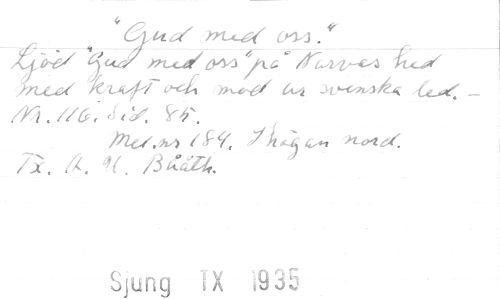 "Gud med oss."
Ljöd "Gud med oss" på Narvas hed
med kraft och mod ur svenska led. –
Nr. 116. Sid. 85.
Mel. nr 184. I högan nord.
Tx. A. U. Bååth.
Sjung TX 1935